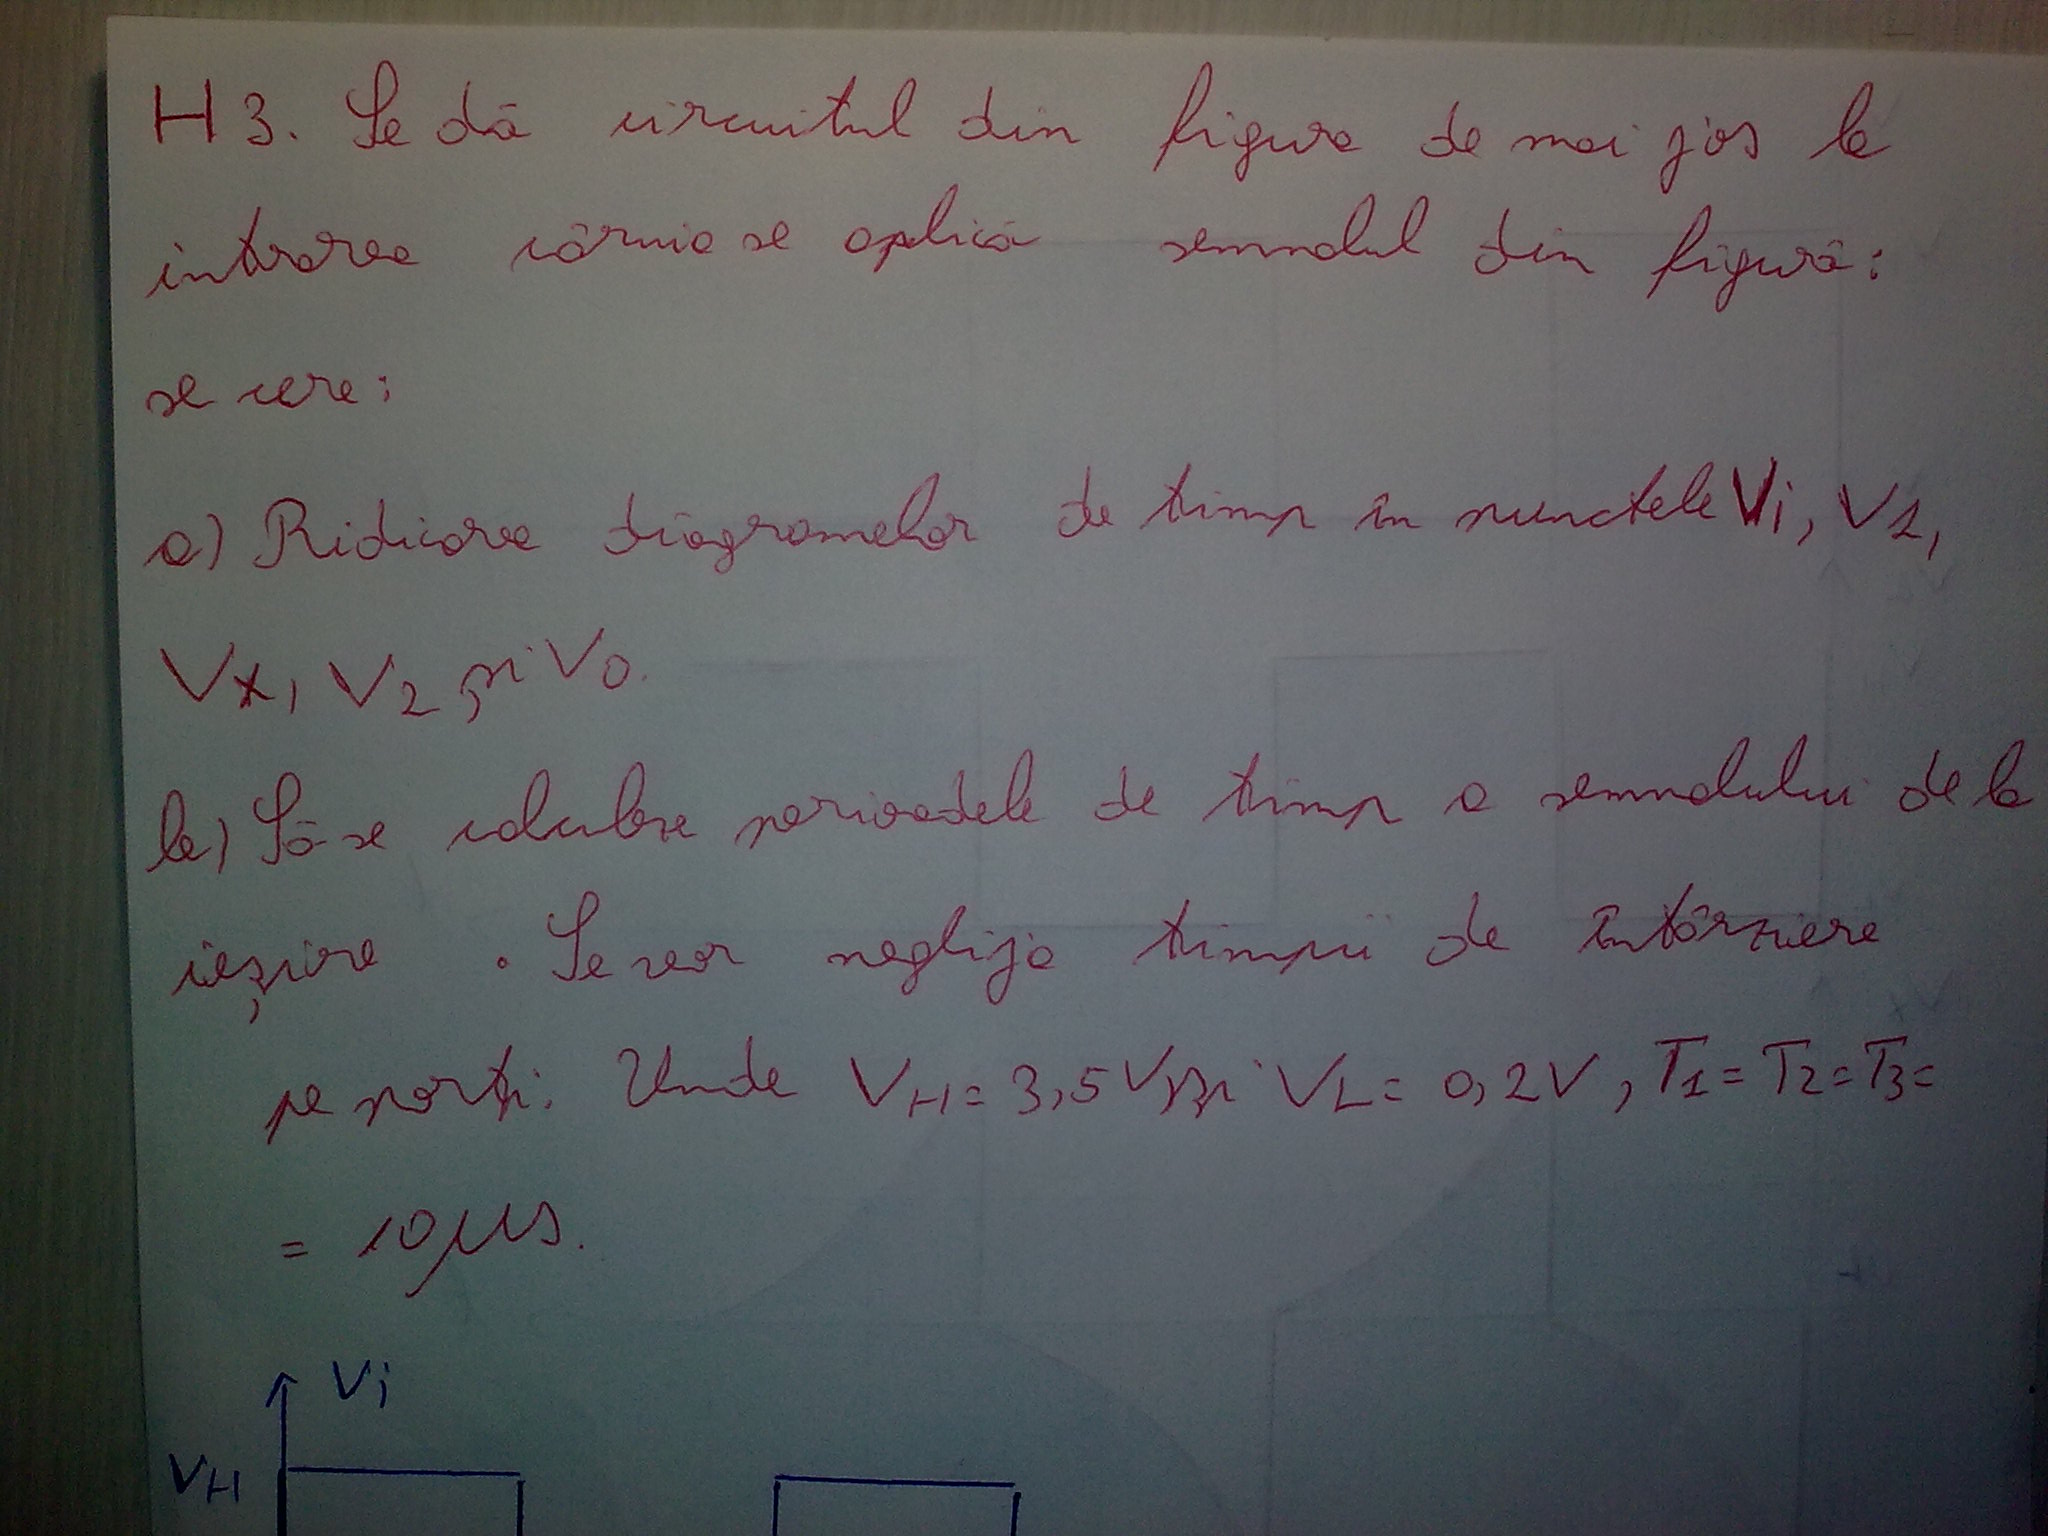 H3. Se dă circuitul din figura de mai jos la
intrarea căruia se aplică semnalul din figură:
se cere:
a) Ridicarea diagramelor de timp în punctele Vi, V1,
Vx, V2 și V0.
b) Să se calculeze perioadele de timp a semnalului de la
ieșire . Se vor neglija timpii de întârziere
pe porți. Unde VH = 3,5V și VL = 0,2V, T1 = T2 = T3 =
= 10 μs.
Vi
VH